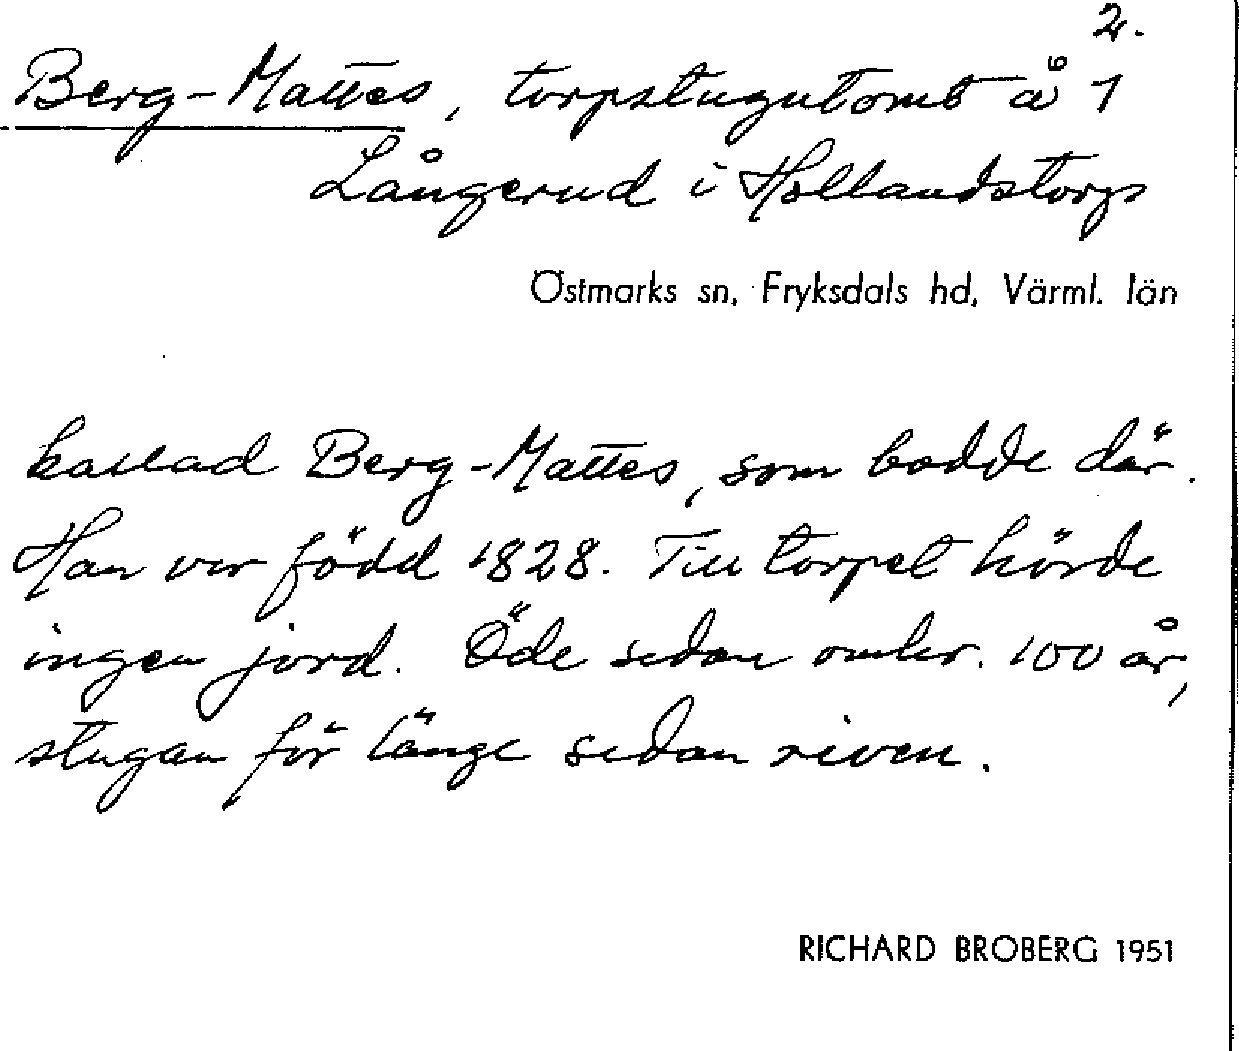 2.
Berg-Mattes, torpstugutomt å 1
Långerud i Hollandstorp
Östmarks sn, Fryksdals hd, Värml. län
kallad Berg-Mattes, som bodde där.
Han var född 1828. Till torpet hörde
ingen jord. Öde sedan omkr. 100 år,
stugan för länge sedan riven.
RICHARD BROBERG 1951